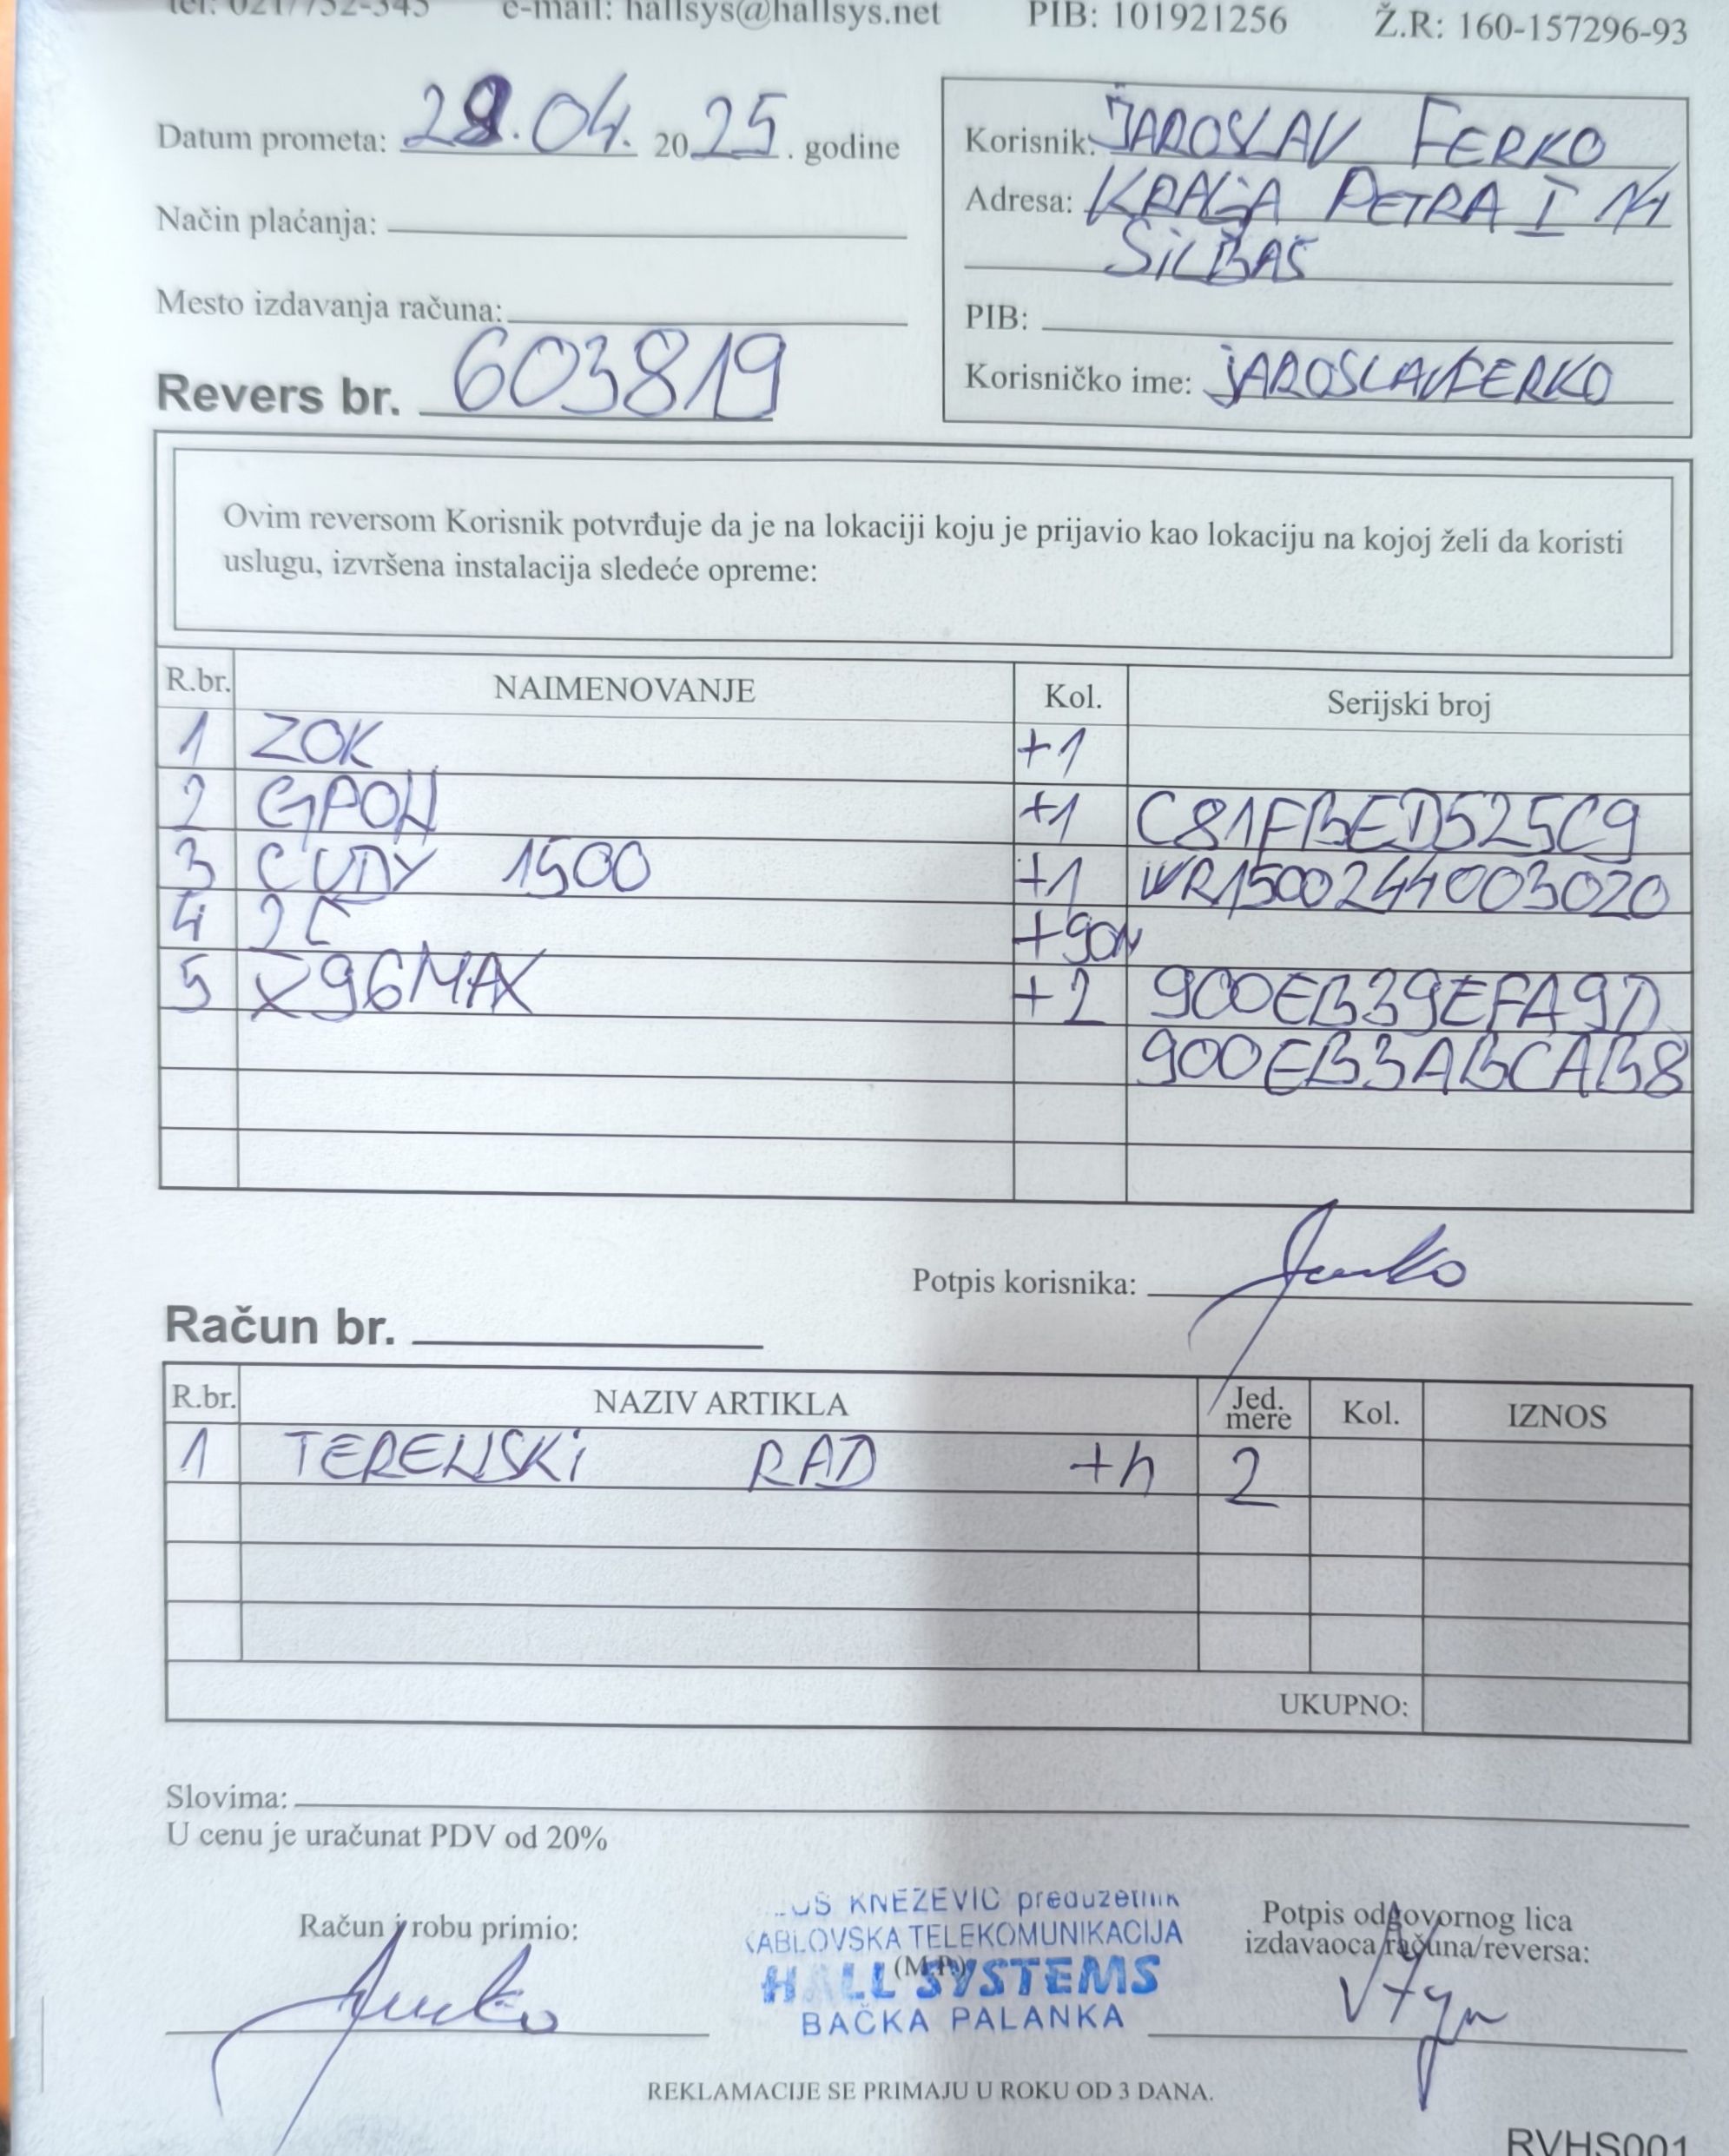 tel: 021/752-345 e-mail: hallsys@hallsys.net PIB: 101921256 Ž.R: 160-157296-93
Datum prometa: 28.04. 2025. godine
Korisnik: JAROSLAV FERKO
Adresa: KRALJA PETRA I 14
SILBAŠ
Način plaćanja:
Mesto izdavanja računa:
PIB:
Revers br. 603819
Korisničko ime: JAROSLAVFERKO
Ovim reversom Korisnik potvrđuje da je na lokaciji koju je prijavio kao lokaciju na kojoj želi da koristi
uslugu, izvršena instalacija sledeće opreme:
R.br. NAIMENOVANJE Kol. Serijski broj
1 ZOK +1
2 GPON +1 C81FBED525C9
3 CUDY 1500 +1 WR1500244003020
4 2C +90M
5 X96MAX +2 900EB39EFA9D
900EB3ABCAB8
Potpis korisnika:
Račun br.
R.br. NAZIV ARTIKLA Jed. mere Kol. IZNOS
1 TERENSKI RAD +h 2
UKUPNO:
Slovima:
U cenu je uračunat PDV od 20%
KNEZEVIC preduzetnik
KABLOVSKA TELEKOMUNIKACIJA
(M.P.)
HALL SYSTEMS
BAČKA PALANKA
Račun i robu primio:
Potpis odgovornog lica
izdavaoca računa/reversa:
REKLAMACIJE SE PRIMAJU U ROKU OD 3 DANA.
RVHS001